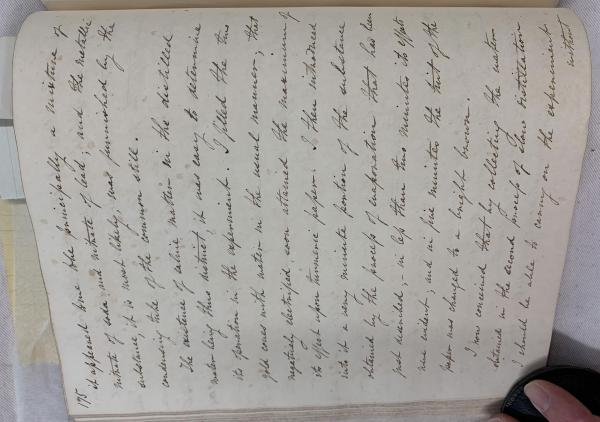 175
it appeared to me to be principally a mixture of
nitrate of soda and nitrate of lead; and the metallic
substance it is most likely was furnished by the
condensing tube of the common still.
The existence of saline matter in the distilled
water being thus distinct it was easy to determine
its operation in the experiment. I filled the two
gold cones with water in the usual manner; that
negatively electrified soon attained the maximum of
its effect upon turmeric paper. I then introduced
into it a very minute portion of the substance
obtained by the process of evaporation that has been
just described; in less than two minutes its effects
were evident; and in five minutes the tint of the
paper was changed to a bright brown.
I now conceived that by collecting the water
obtained in the second process of slow distillation
I should be able to carry on the experiment
without